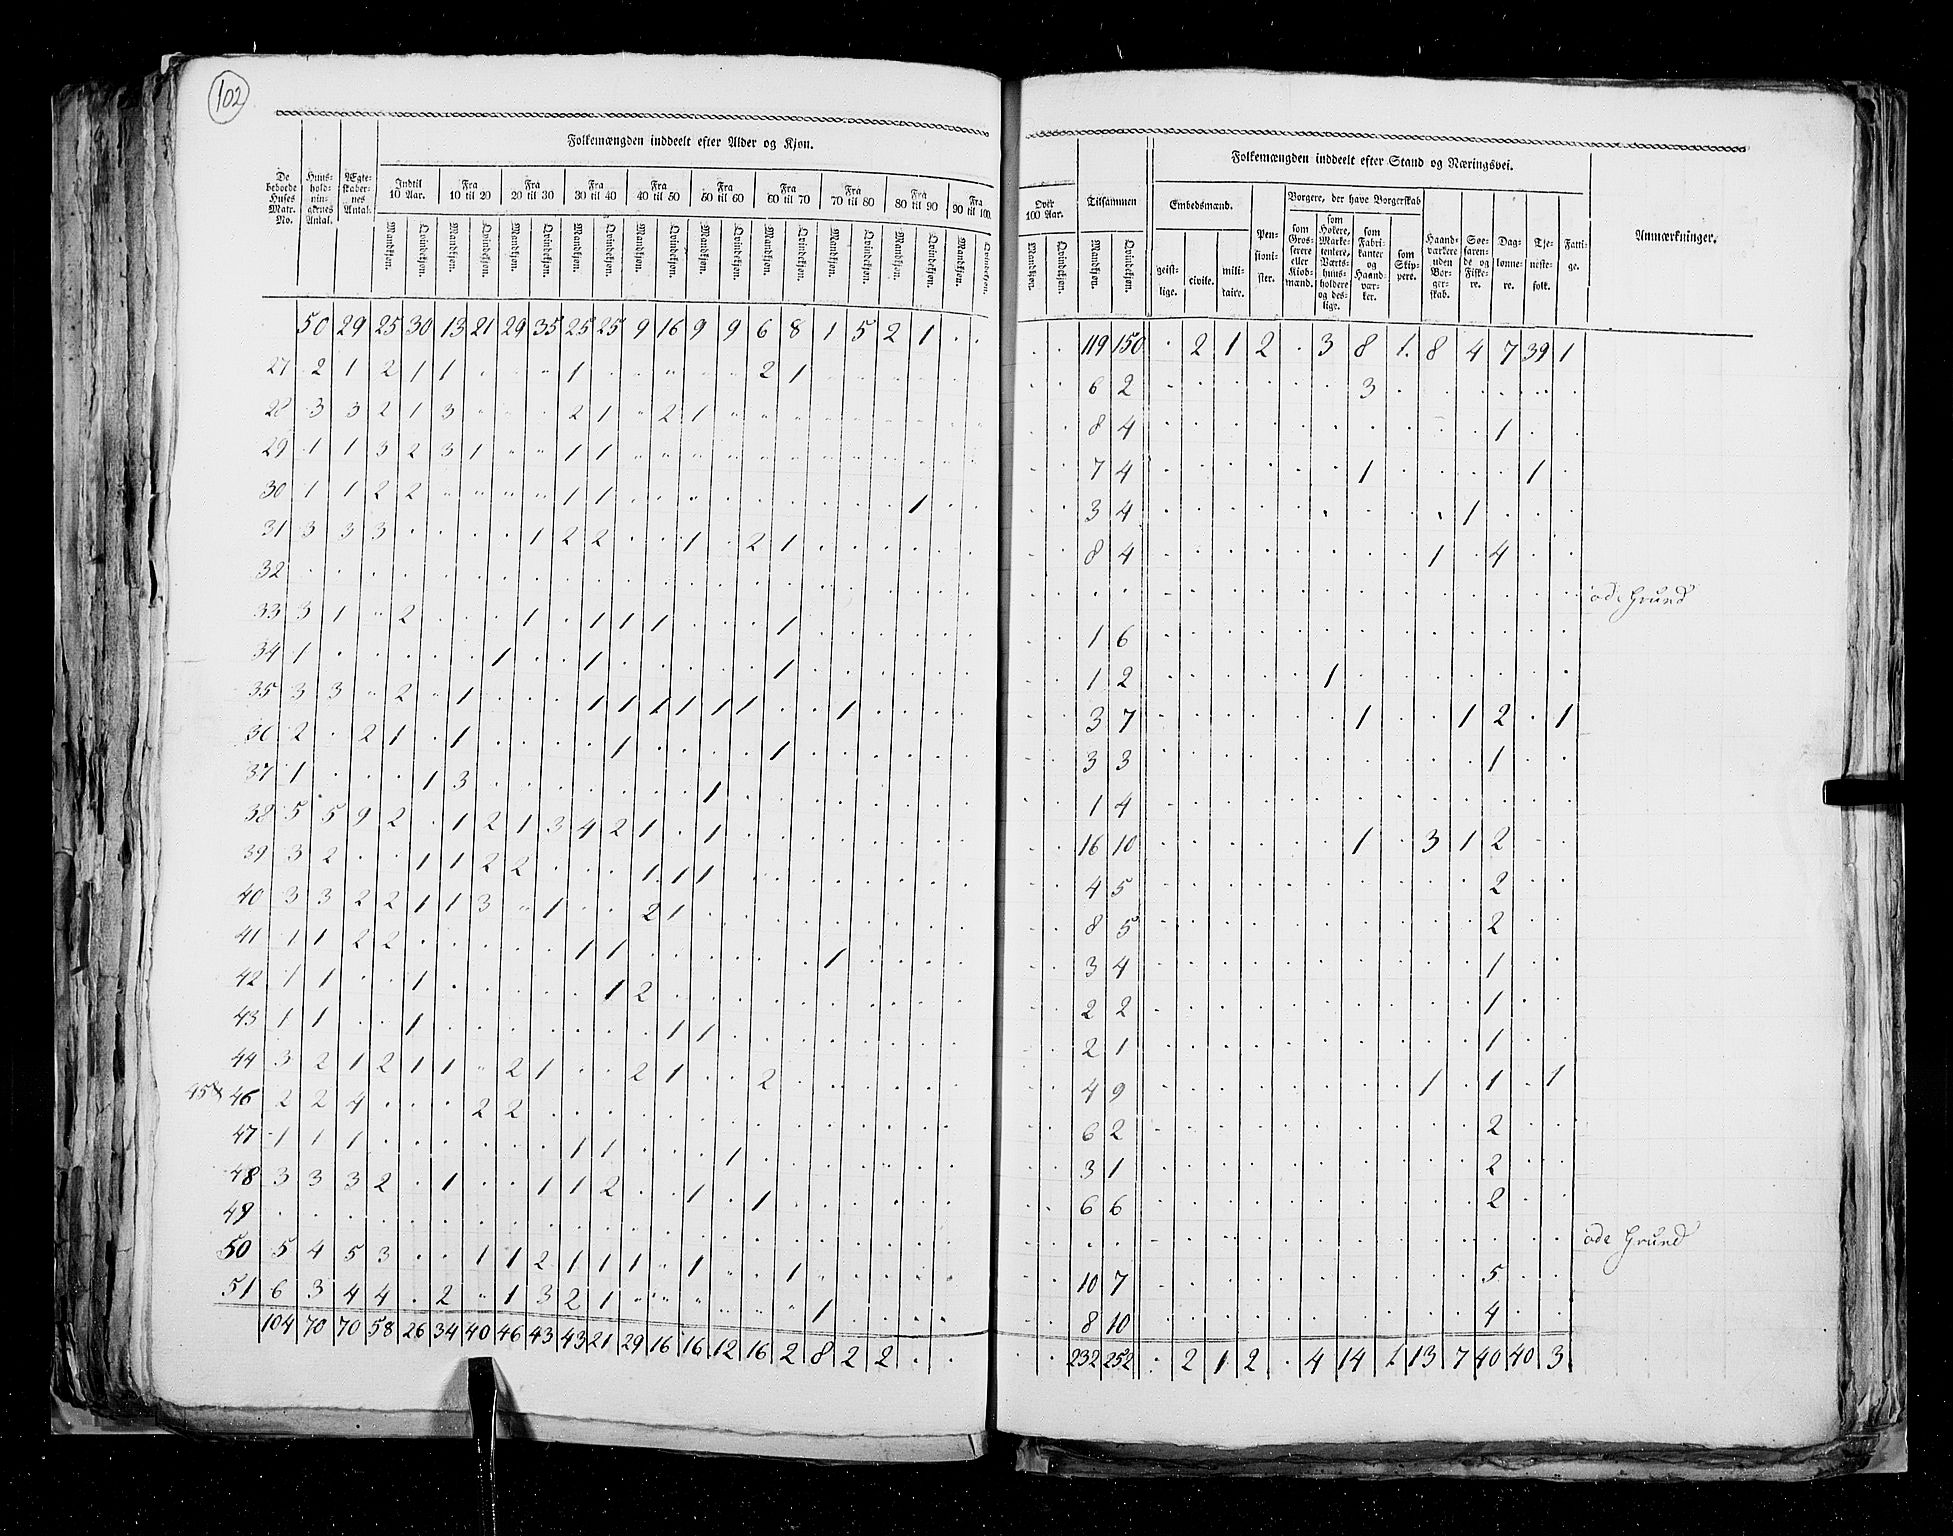 102
Folkemængden inddeelt efter Alder og Kjøn.
De beboede Huses Matr. No.
Huus-hold-nin-gernes Antal.
Ægte-skaber-nes Antal.
Indtil 10 Aar.
Fra 10 til 20
Fra 20 til 30
Fra 30 til 40
Fra 40 til 50
Fra 50 til 60
Fra 60 til 70
Fra 70 til 80
Fra 80 til 90
Fra 90 til 100.
Mandkjøn. Qvindekjøn. Mandkjøn. Qvindekjøn. Mandkjøn. Qvindekjøn. Mandkjøn. Qvindekjøn. Mandkjøn. Qvindekjøn. Mandkjøn. Qvindekjøn. Mandkjøn. Qvindekjøn. Mandkjøn. Qvindekjøn. Mandkjøn. Qvindekjøn. Mandkjøn. Qvindekjøn.
50 29 25 30 13 21 29 35 25 25 9 16 9 9 6 8 1 5 2 1 . .
27 2 1 2 1 1 1 2 1
28 3 3 2 1 3 2 1 2 1
29 1 1 3 2 3 1 1 1
30 1 1 2 2 1 1 1
31 3 3 3 1 2 2 1 2 1
32
33 3 1 2 1 1 1 1 1
34 1 1 1 1
35 3 3 2 1 1 1 1 1 1 1
36 2 2 1 1 1 1
37 1 1 3 1
38 5 5 9 2 1 2 1 3 4 2 1 1
39 3 2 1 1 2 2 1 1 1
40 3 3 2 2 1 1 3 1 2 1
41 1 1 2 2 1 1 1
42 1 1 1 1 2
43 1 1 1 1 1
44 3 2 1 2 1 1 2 1 2 1 2
45 & 46 2 2 4 2 2
47 1 1 1 1 1 1
48 3 3 3 2 1 1 1 2 1 1
49
50 5 4 5 3 1 1 2 1 1 1 1 1
51 6 3 4 4 2 1 3 2 1 1
104 70 70 58 26 34 40 46 43 43 21 29 16 16 12 16 2 8 2 2 . .
Over 100 Aar.
Mandkjøn. Qvindekjøn.
Tilsammen
Mandkjøn. Qvindekjøn.
Folkemængden inddeelt efter Stand og Næringsvei.
Embedsmænd.
geist-lige.
civile.
mili-taire.
Pen-sioni-ster.
Borgere, der have Borgerskab
som Gros-serere eller Kiøb-mænd.
som Hökere, Marke-tentere, Værts-huus-holdere og des-lige.
som Fabri-kanter og Haand-vær-ker.
som Skip-pere.
Haand-værkere uden Bor-ger-skab.
Søe-faren-de og Fiske-re.
Dag-lønne-re.
Tje-neste-folk.
Fatti-ge.
Anmærkninger.
. . 119 150 . 2 1 2 . 3 8 1. 8 4 7 39 1
6 2 3
8 4 1
7 4 1 1
3 4 1
8 4 1 4
öde Grund
1 6
1 2 1
3 7 1 1 2 1
3 3 1
1 4
16 10 1 3 1 2
4 5 2
8 5 2
3 4 1
2 2 1
2 1 1
4 9 1 1 1
6 2 2
3 1 2
6 6 2
öde Grund
10 7 5
8 10 4
232 252 . 2 1 2 . 4 14 1 13 7 40 40 3